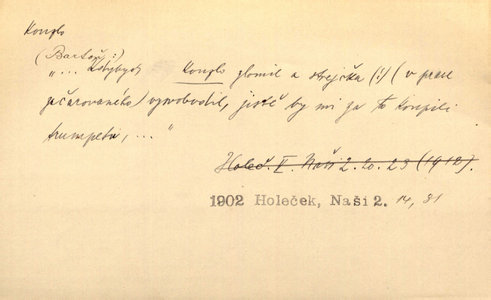 Kouzlo
(Bartoš:)
"... Kdybych kouzlo zlomil a strejčka (!) (v prase
začarovaného) vysvobodil, jistě by mi za to koupili
trumpetu, ..."
Holeč. I. Naši 2. 20. 23 (1912).
1902 Holeček, Naši 2. 14, 31